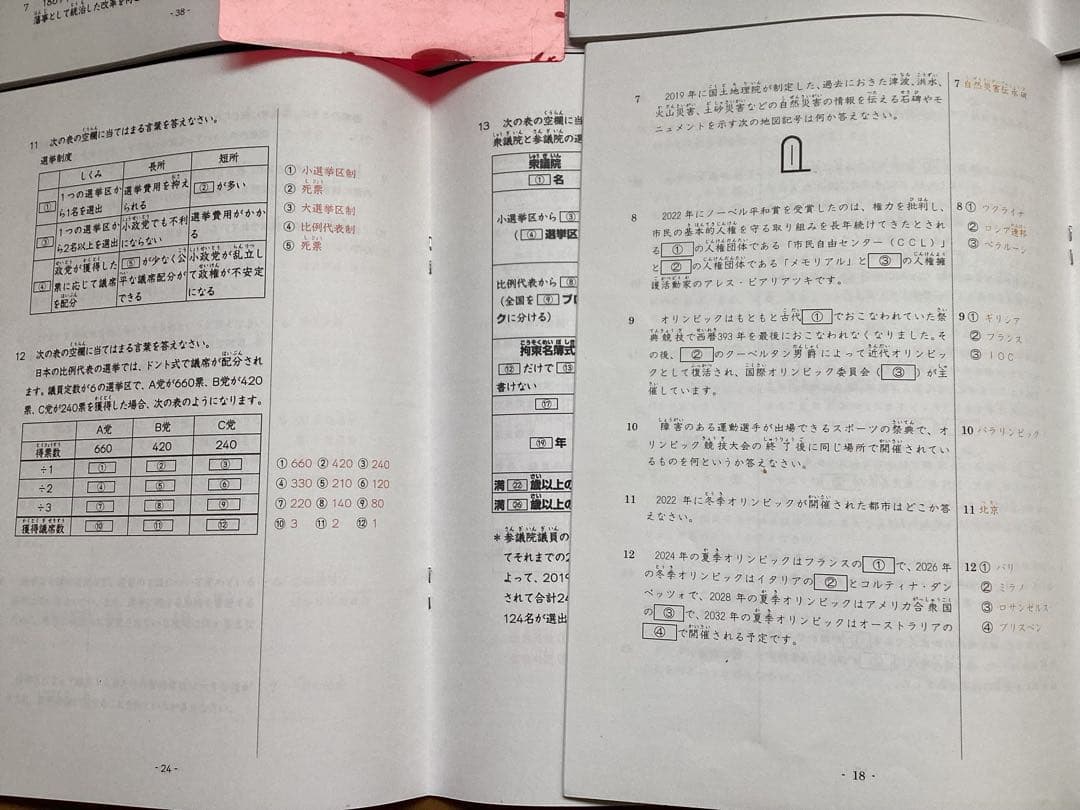 藩事として統治した改革を何と
- 38 -
11 次の表の空欄に当てはまる言葉を答えなさい。
選挙制度
しくみ 長所 短所
① 1つの選挙区から1名を選出 選挙費用を抑えられる ②が多い
③ 1つの選挙区から2名以上を選出 小政党でも不利にならない 選挙費用がかかる
④ 政党が獲得した票に応じて議席を配分 ⑤が少なく公平な議席配分ができる 小政党が乱立して政権が不安定になる
① 小選挙区制
② 死票
③ 大選挙区制
④ 比例代表制
⑤ 死票
12 次の表の空欄に当てはまる言葉を答えなさい。
日本の比例代表の選挙では、ドント式で議席が配分され
ます。議員定数が6の選挙区で、A党が660票、B党が420
票、C党が240票を獲得した場合、次の表のようになります。
A党 B党 C党
得票数 660 420 240
÷1 ① ② ③
÷2 ④ ⑤ ⑥
÷3 ⑦ ⑧ ⑨
獲得議席数 ⑩ ⑪ ⑫
① 660 ② 420 ③ 240
④ 330 ⑤ 210 ⑥ 120
⑦ 220 ⑧ 140 ⑨ 80
⑩ 3 ⑪ 2 ⑫ 1
- 24 -
13 次の表の空欄に当
衆議院と参議院の選
衆議院
① 名
小選挙区から ③
(④ 選挙区
比例代表から ⑧
(全国を ⑨ ブロ
クに分ける)
拘束名簿式
⑫ だけで ⑬
書けない
⑰
⑲ 年
満 ㉒ 歳以上の
満 歳以上の
* 参議院議員の
てそれまでの2
よって、2019
されて合計24
124名が選出
7 2019年に国土地理院が制定した、過去におきた津波、洪水、
火山災害、土砂災害などの自然災害の情報を伝える石碑やモ
ニュメントを示す次の地図記号は何か答えなさい。
7 自然災害伝承碑
8 2022年にノーベル平和賞を受賞したのは、権力を批判し、
市民の基本的人権を守る取り組みを長年続けてきたとされ
る ① の人権団体である「市民自由センター(CCL)」
と ② の人権団体である「メモリアル」と ③ の人権擁
護活動家のアレス・ビアリアツキです。
8 ① ウクライナ
② ロシア連邦
③ ベラルーシ
9 オリンピックはもともと古代 ① でおこなわれていた祭
典競技で西暦393年を最後におこなわれなくなりました。そ
の後、 ② のクーベルタン男爵によって近代オリンピッ
クとして復活され、国際オリンピック委員会( ③ )が主
催しています。
9 ① ギリシア
② フランス
③ IOC
10 障害のある運動選手が出場できるスポーツの祭典で、オ
リンピック競技大会の終了後に同じ場所で開催されてい
るものを何というか答えなさい。
10 パラリンピック
11 2022年に冬季オリンピックが開催された都市はどこか答
えなさい。
11 北京
12 2024年の夏季オリンピックはフランスの ① で、2026年
の冬季オリンピックはイタリアの ② とコルティナ・ダン
ペッツォで、2028年の夏季オリンピックはアメリカ合衆国
の ③ で、2032年の夏季オリンピックはオーストラリアの
④ で開催される予定です。
12 ① パリ
② ミラノ
③ ロサンゼルス
④ ブリスベン
- 18 -